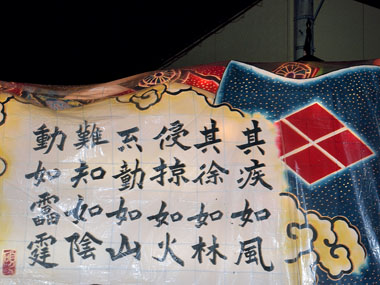 其疾如風
其徐如林
侵掠如火
不動如山
難知如陰
動如雷霆